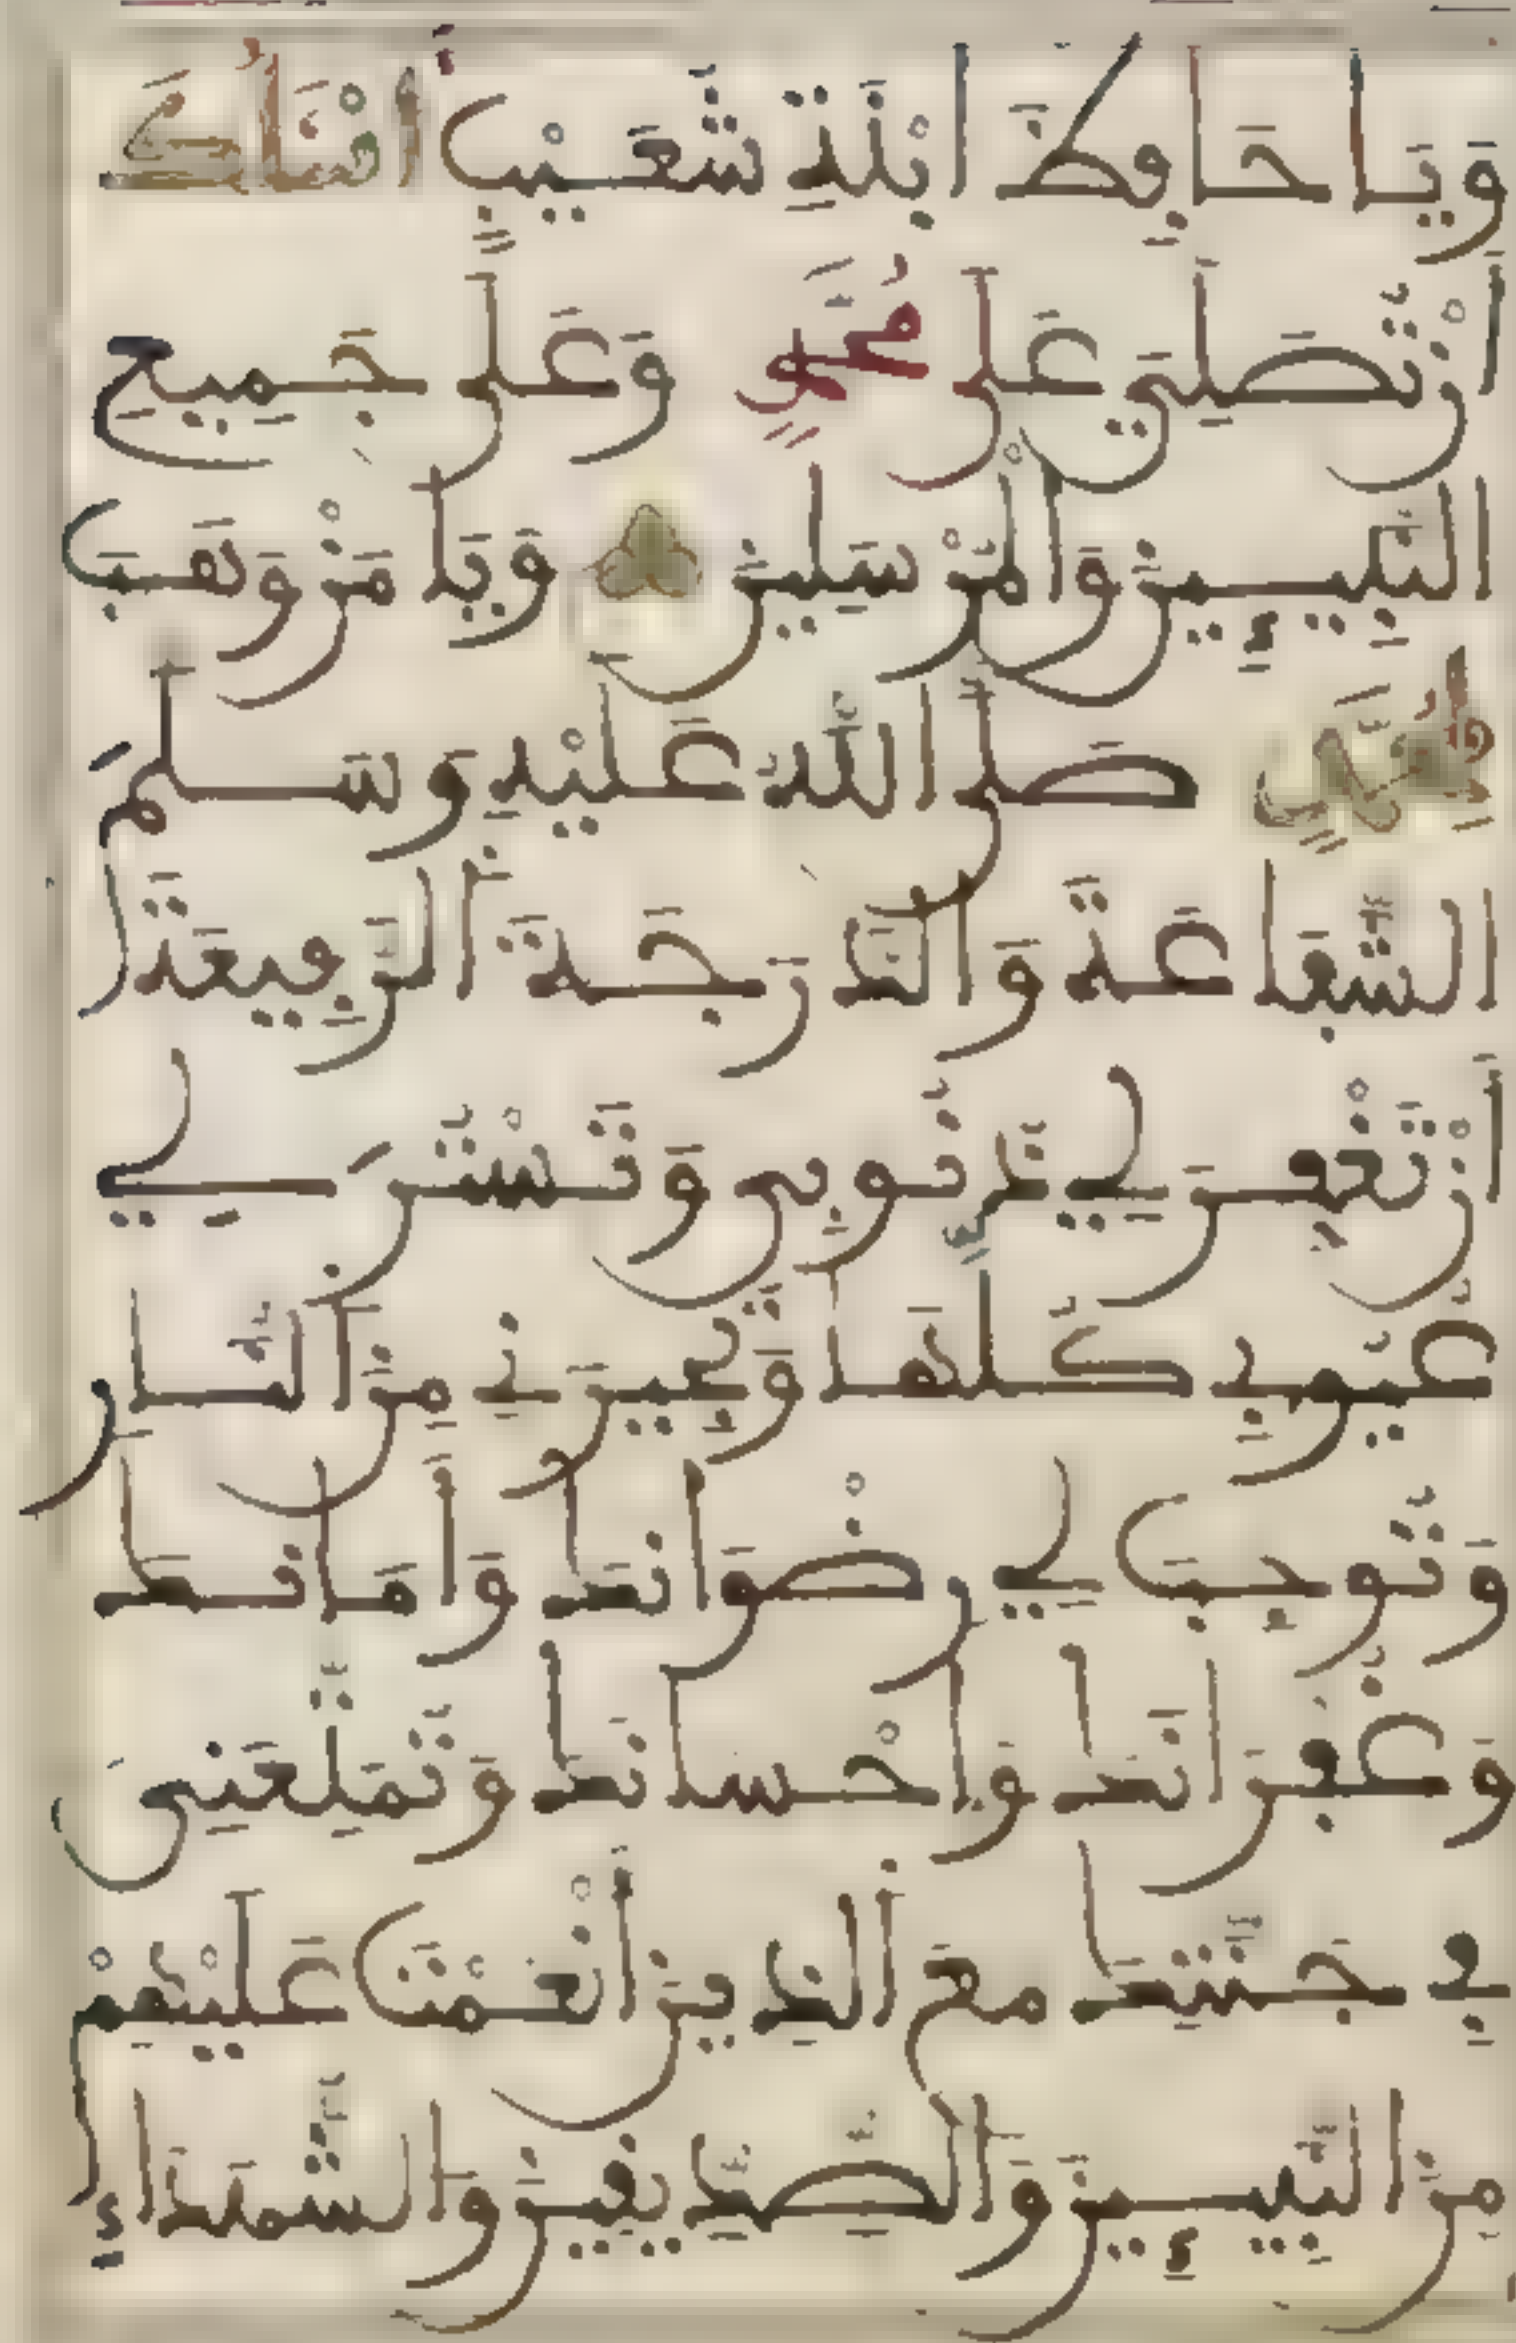 وَيَا حَافِظَ ابْنَةِ شُعَيْبٍ أَسْأَلُكَ
أَنْ تُصَلِّيَ عَلَى مُحَمَّدٍ وَعَلَى جَمِيعِ
النَّبِيئِينَ وَالْمُرْسَلِينَ وَيَا مَنْ وَهَبَ
لِمُحَمَّدٍ صَلَّى اللَّهُ عَلَيْهِ وَسَلَّمَ
الشَّفَاعَةَ وَالدَّرَجَةَ الرَّفِيعَةَ
أَنْ تَغْفِرَ لِي ذُنُوبِي وَتَسْتُرَ لِي
عُيُوبِي كُلَّهَا وَتُجِيرَنِي مِنَ النَّارِ
وَتُوجِبَ لِي رِضْوَانَكَ وَأَمَانَكَ
وَغُفْرَانَكَ وَإِحْسَانَكَ وَتُمَتِّعَنِي
فِي جَنَّتِكَ مَعَ الَّذِينَ أَنْعَمْتَ عَلَيْهِمْ
مِنَ النَّبِيئِينَ وَالصِّدِّيقِينَ وَالشُّهَدَاءِ